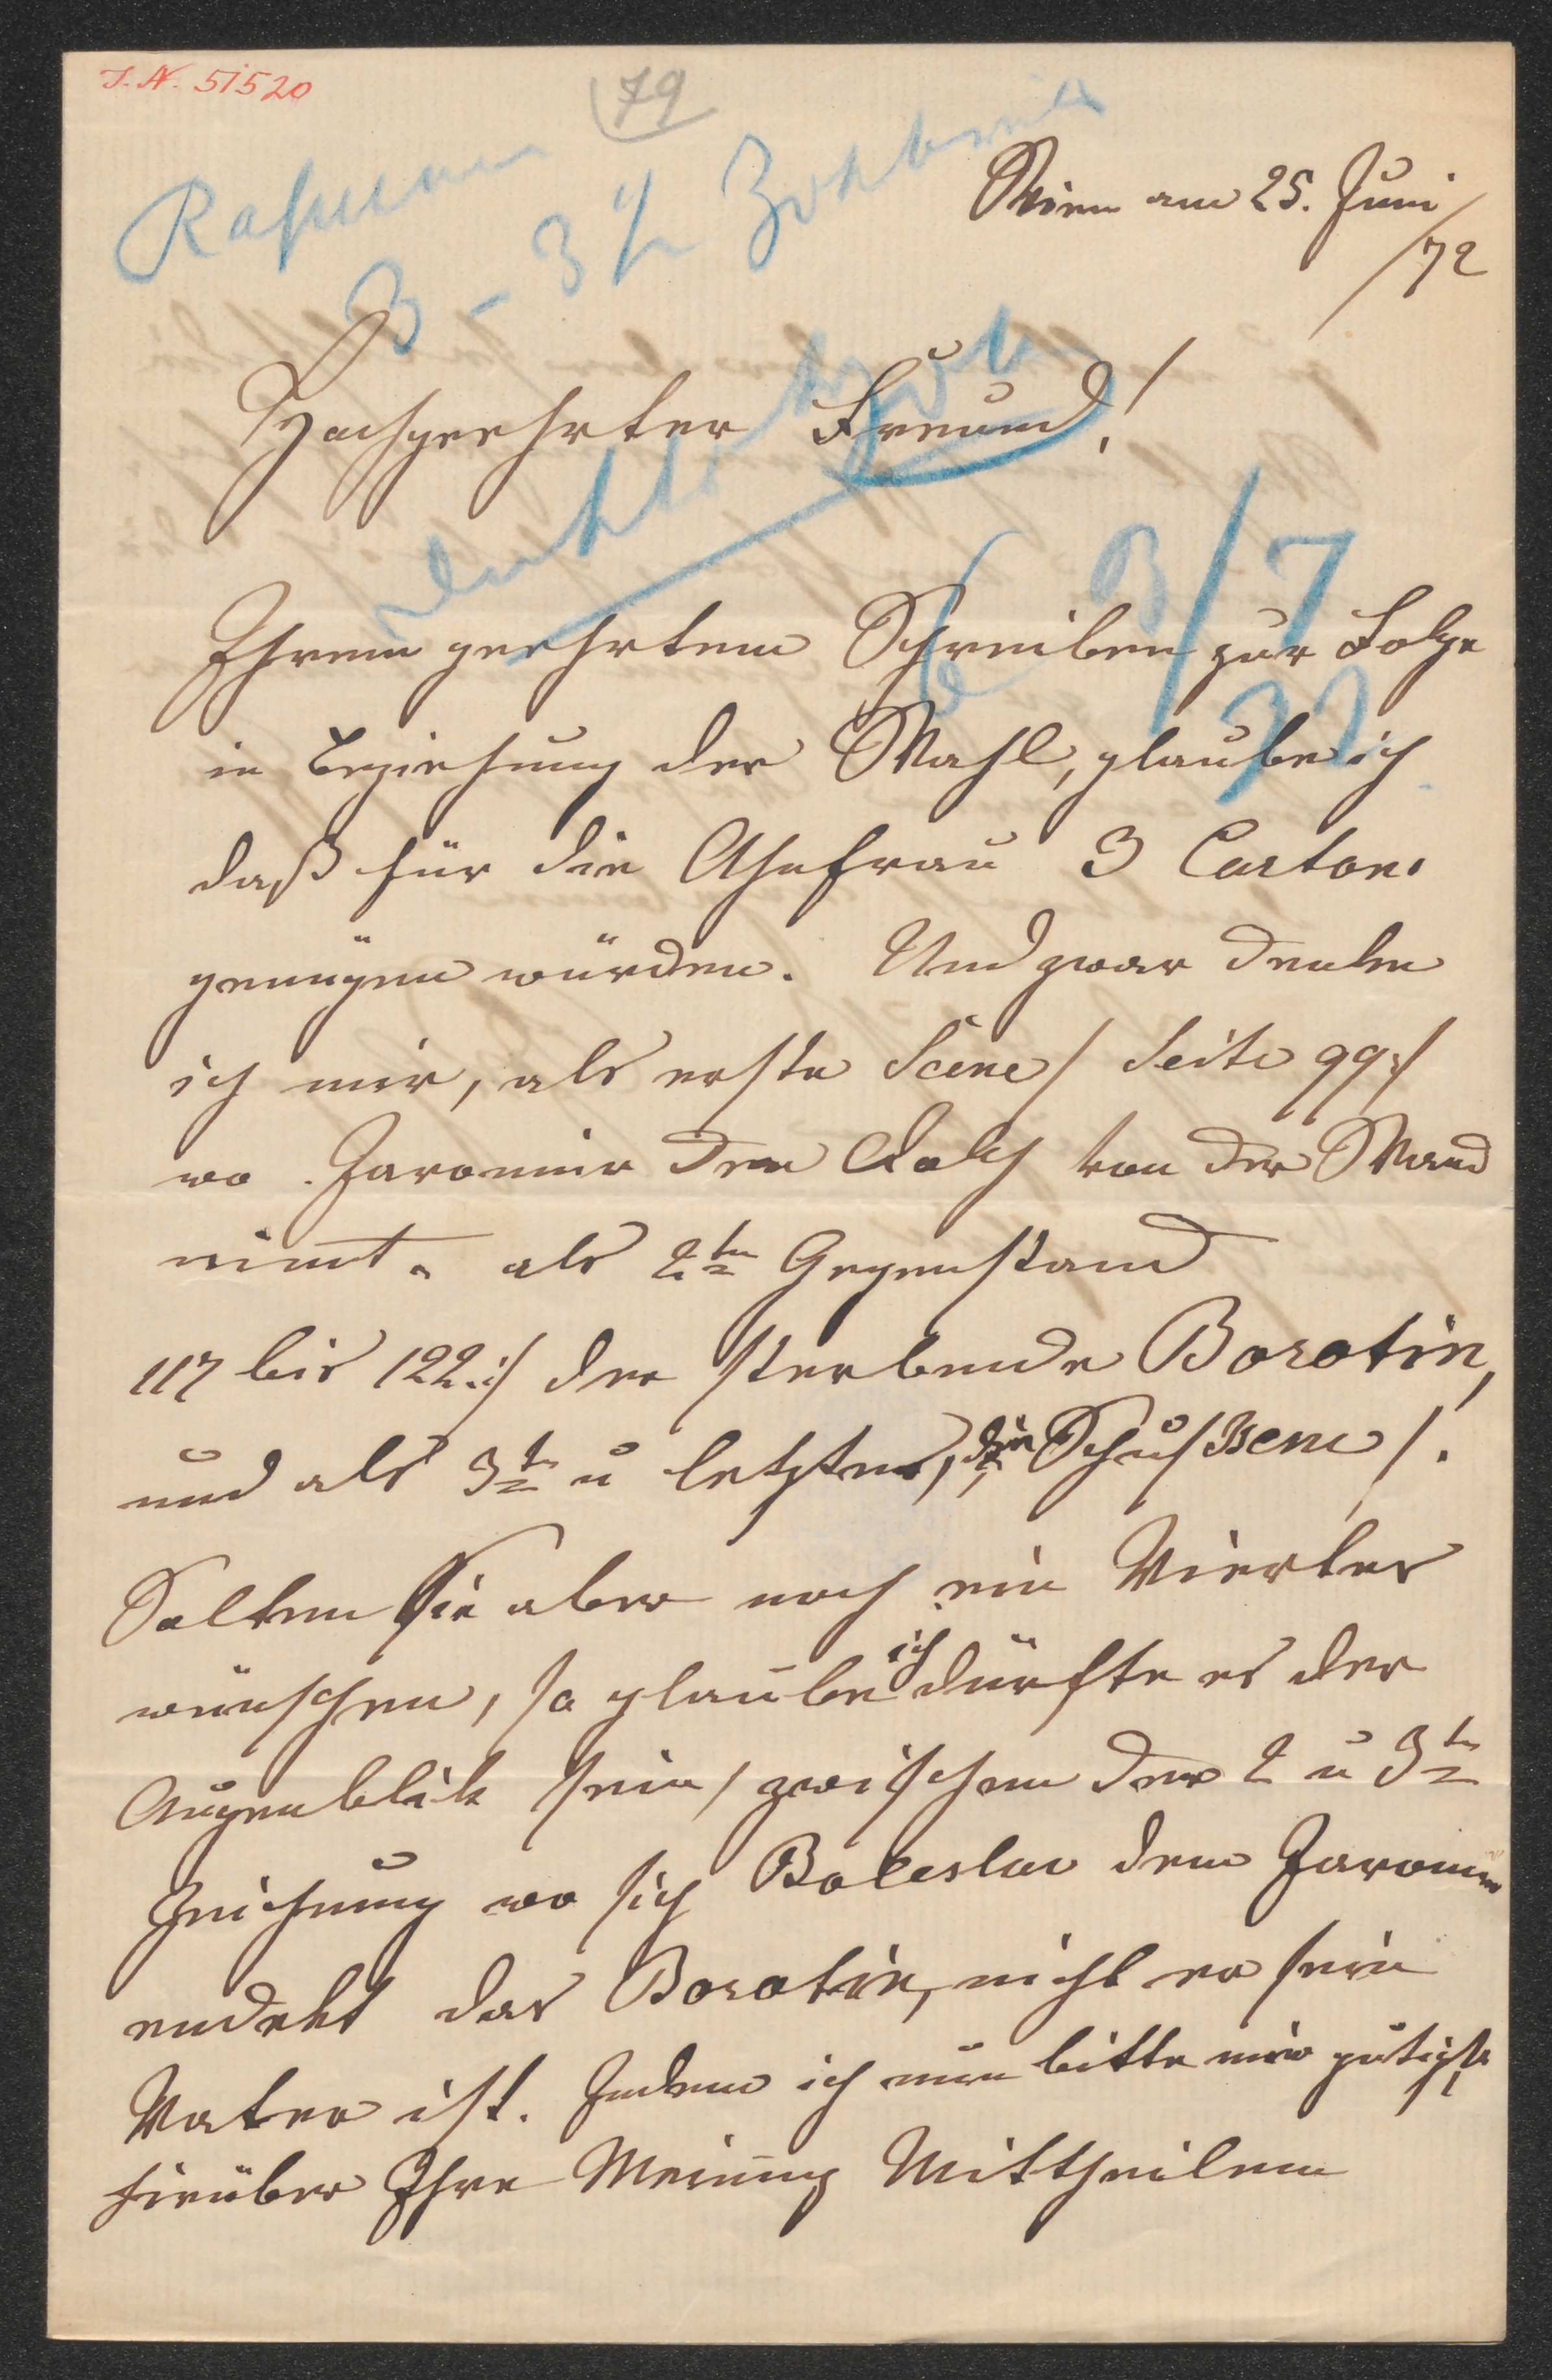 I. N. 51520
79
Wien am 25. Juni
/72
Hochgeehrter Freund!
3/7
72
Ihrem geehrtem Schreiben zur Folge
in Beziehung der Wahl, glaube ich
daß für die Ahnfrau 3 Cartons
genügen würden. Und zwar denken
ich mir, als erste Scene / Seite 99 :/
wo Jaromir den Dolch von der Wand
nim̅t. als 2te Gegenstand
117 bis 122 :/ der sterbende Borotin,
und als 3te u letzter, die Schußscene /.
Sollten Sie aber noch ein Viertes
wünschen, so glaube ich dürfte es der
Augenblick sein / zwischen der 2 u 3te
Zeichnung wo sich Boleslav dem Jaromir
endekt das Borotin, nicht er sein
Vater ist. Indem ich nun bitte mir gütigst
hirüber Ihre Meinung Mittheilen